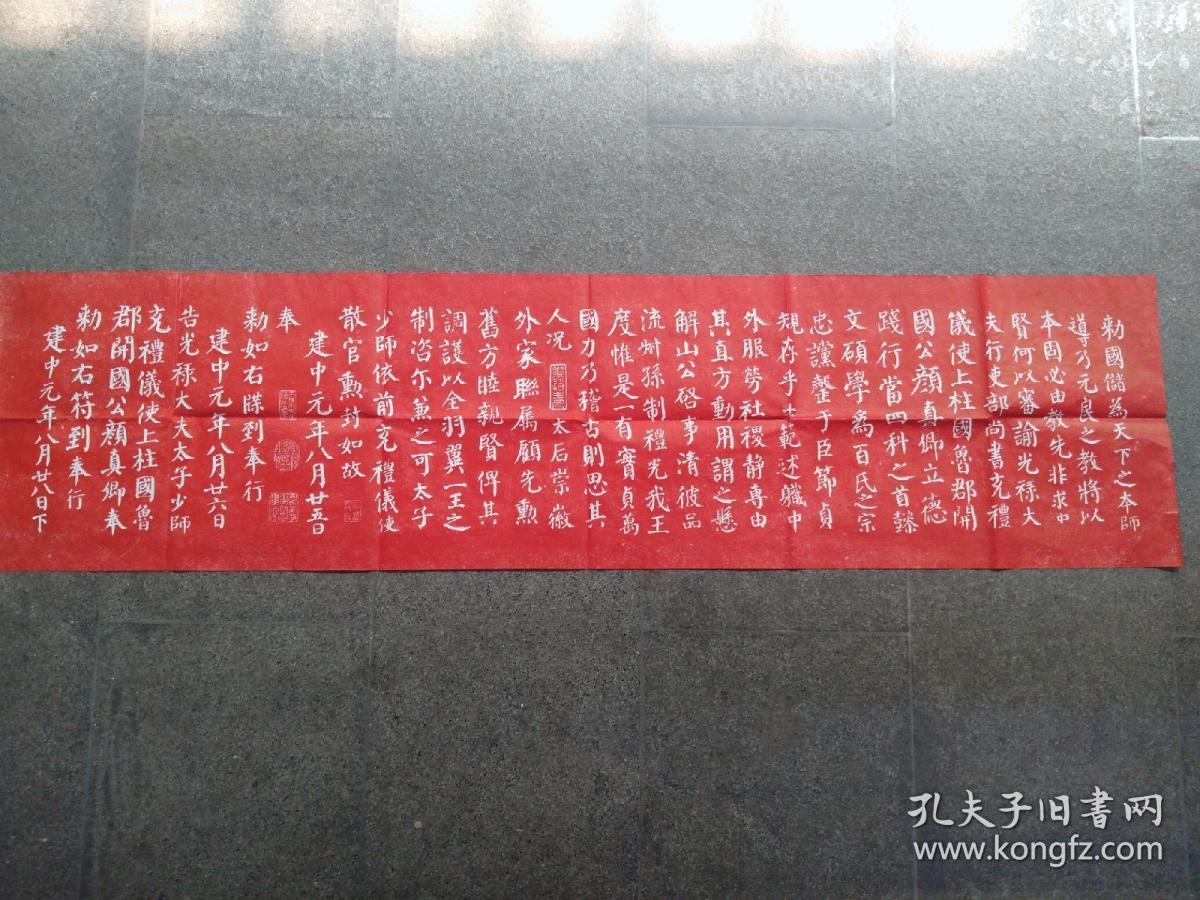 勅國儲為天下之本師
導乃元良之教將以
本固必由教先非求中
賢何以審諭光祿大
夫行吏部尚書充禮
儀使上柱國魯郡開
國公顏真卿立德
踐行當四科之首懿
文碩學為百氏之宗
忠讜罄于臣節貞
規存乎士範述職中
外服勞社稷静專由
其直方動用謂之懸
解山公啓事清彼品
流叔孫制禮光我王
度惟是一有實貞萬
國力乃稽古則思其
人况 太后崇徽
外家聯属顧先勲
舊方睦親賢俾其
調護以全羽翼一王之
制咨尔兼之可太子
少師依前充禮儀使
散官勳封如故
建中元年八月廿五日
奉
勅如右牒到奉行
建中元年八月廿六日
告光祿大夫太子少師
充禮儀使上柱國魯
郡開國公顏真卿奉
勅如右符到奉行
建中元年八月廿八日下
孔夫子旧書网
www.kongfz.com